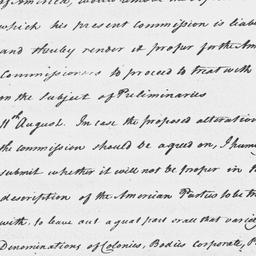 which his present commission is liab
and thereby render it proper for the Am
Commissioners to proceed to treat with
on the subject of Preliminaries
11th August. In case the proposed alteration
the commission should be agreed on, I hum
submit whether it will not be proper in t
description of the American Parties to be tr
with, to leave out a great part or all that varie
Denominations of Colonies, Bodies corporate, P